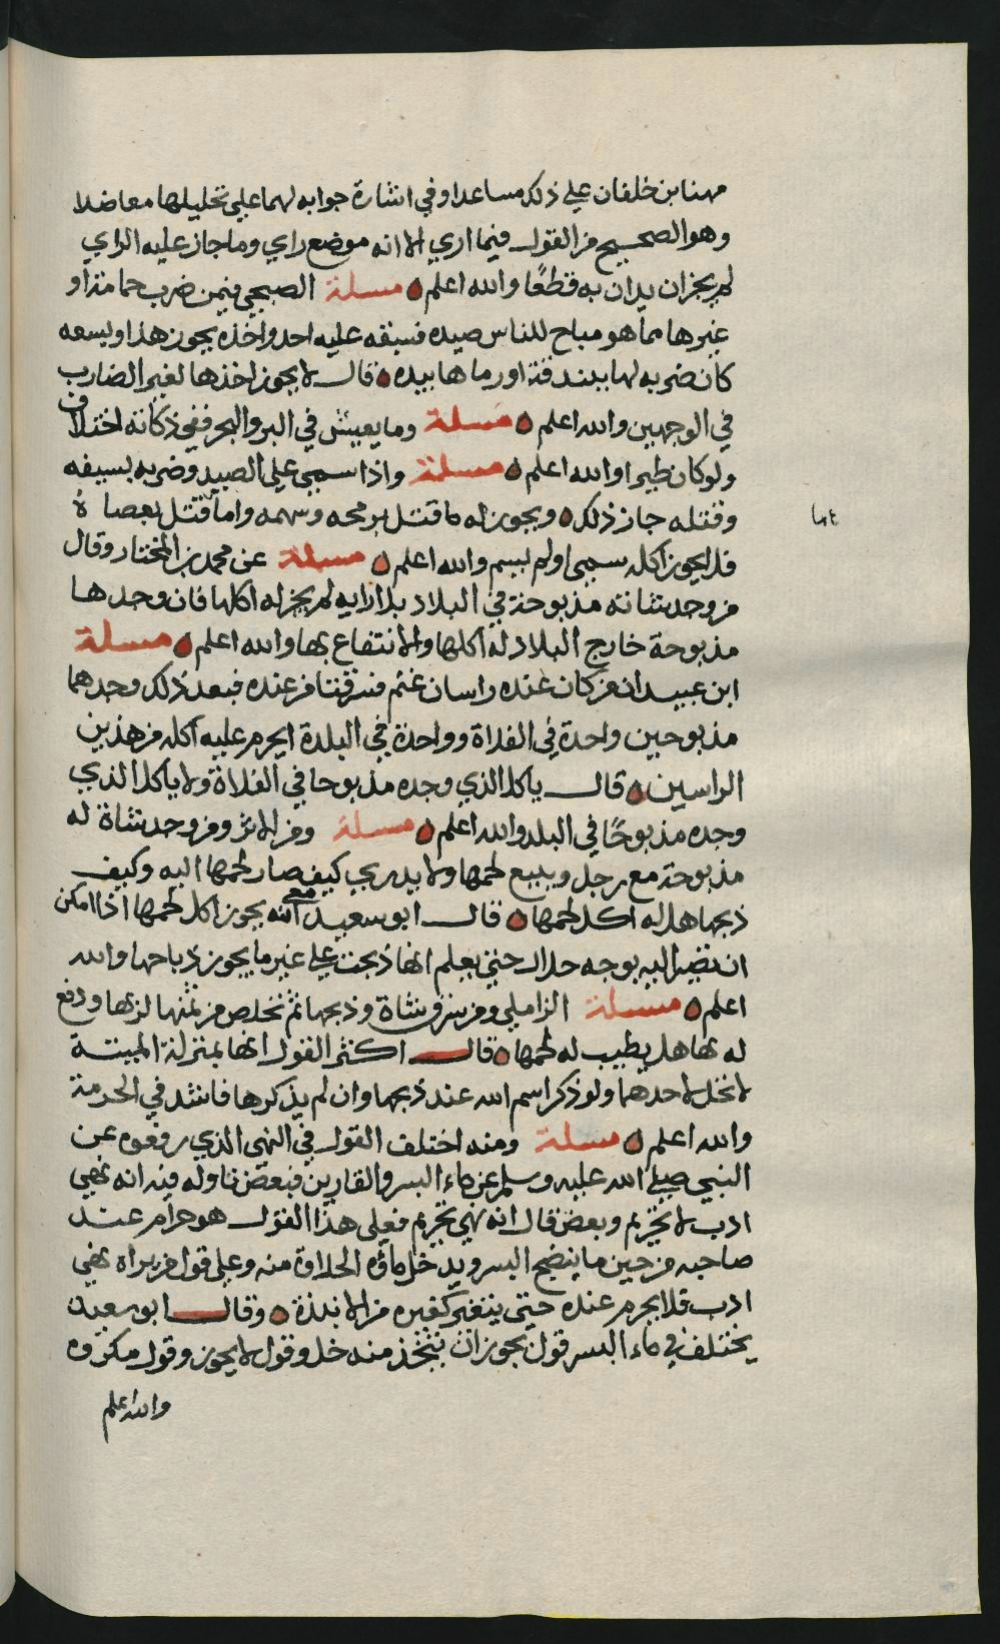 مهنا بن خلفان علي ذلك مساعدا وفي اشارة جوابه لهما علي تحليلها معاضدا
وهو الصحيح من القول فيما اري الا انه موضع راي وما جاز عليه الراي
لم يجز ان يدان به قطعًا والله اعلم مسلة الصبحي فيمن ضرب حمامة او
غيرها مما هو مباح للناس صيده فسبقه عليه احد واخذه يجوز هذا ويسعه
كان ضربه لها ببندقة او رماها بيده قال لا يجوز اخذها لغير الضارب
في الوجهين والله اعلم مسلة وما يعيش في البر والبحر ففي ذكاته اختلاف
ولو كان طيرا والله اعلم مسلة واذا سمي علي الصيد وضربه بسيفه
وقتله جاز ذلك ويجوز له ما قتل برمحه وسهمه واما قتل بعصاهُ
فلا يجوز اكله سمي او لم يسم والله اعلم مسلة عن محمد بن المختار وقال
من وجد شاته مذبوحة في البلاد بلا رايه لم يجز له اكلها فان وجدها
مذبوحة خارج البلاد له اكلها والانتفاع بها والله اعلم مسلة
ابن عبيدان من كان عنده راسان غنم فسرقتا من عنده فبعد ذلك وجدهما
مذبوحين واحدة في الفلاة وواحدة في البلدة ايحرم عليه اكله من هذين
الراسين قال ياكل الذي وجده مذبوحا في الفلاة ولا ياكل الذي
وجده مذبوحًا في البلد والله اعلم مسلة ومن الاثر ومن وجد شاة له
مذبوحة مع رجل ويبيع لحمها ولا يدري كيف صار لحمها اليه وكيف
ذبحها هل له اكل لحمها قال ابو سعيد معي انه يجوز اكل لحمها اذا امكن
ان تصير اليه بوجه حلال حتي يعلم انها ذبحت علي غير ما يجوز ذباحها والله
اعلم مسلة الزاملي ومن سرق شاة وذبحها ثم تخلص من ثمنها لربها ودفع
له بها هل يطيب له لحمها قال اكثر القول انها بمنزلة الميتة
لا تحل لاحدهما ولو ذكر اسم الله عند ذبحها وان لم يذكرها فاشد في الحرمة
والله اعلم مسلة ومنه اختلف القول في النهي الذي رفعوه عن
النبي صلي الله عليه وسلم عن ماء البسر والقارين فبعض تاوله فيه انه نهي
ادب لا تحريم وبعض قال انه نهي تحريم فعلي هذا القول هو حرام عند
صاحبه من حين ما ينضح البسر ويدخل ماؤه الحلاوة منه وعلي قول من يراه نهي
ادب فلا يحرم عنده حتي يتغير كغيره من الانبذة وقال ابو سعيد
يختلف في ماء البسر قول يجوز ان يتخذ منه خل وقول لا يجوز وقول مكروه
والله اعلم